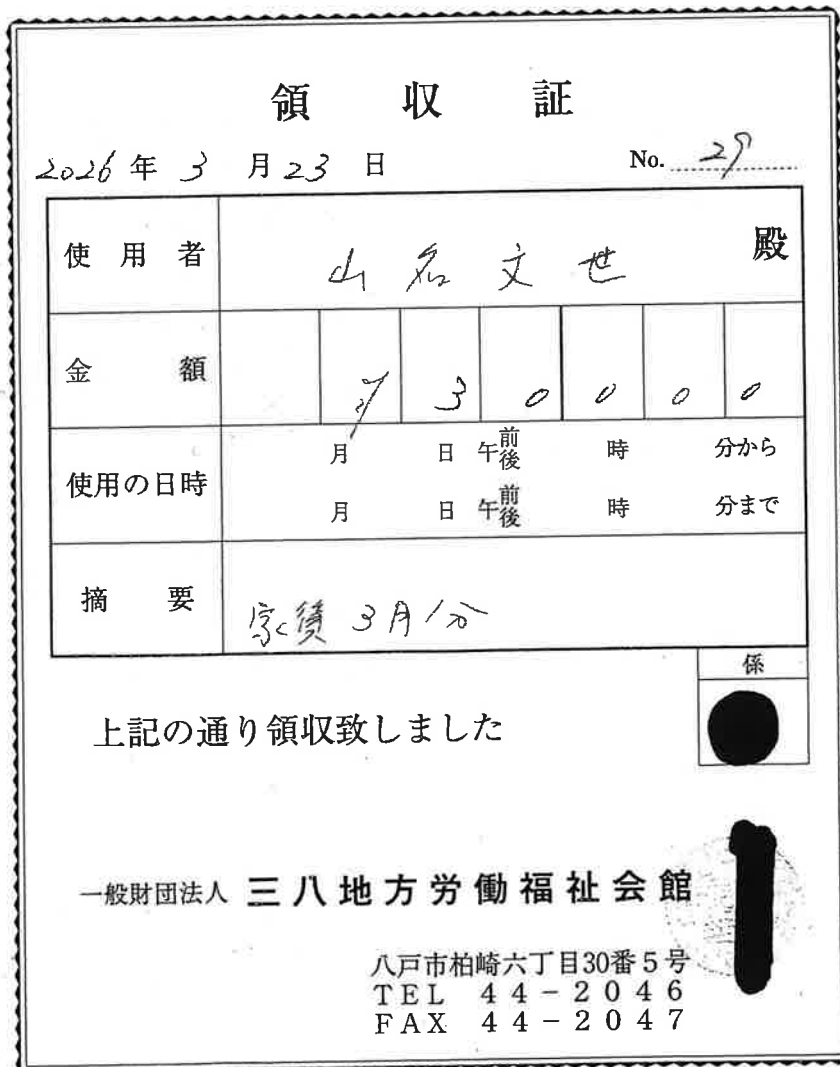 領収証
2026年3月23日 No. 29
使用者 山名文世 殿
金額 ¥30000
使用の日時 月 日 午前後 時 分から
月 日 午前後 時 分まで
摘要 家賃 3月分
係
上記の通り領収致しました
一般財団法人 三八地方労働福祉会館
八戸市柏崎六丁目30番5号
TEL 44-2046
FAX 44-2047